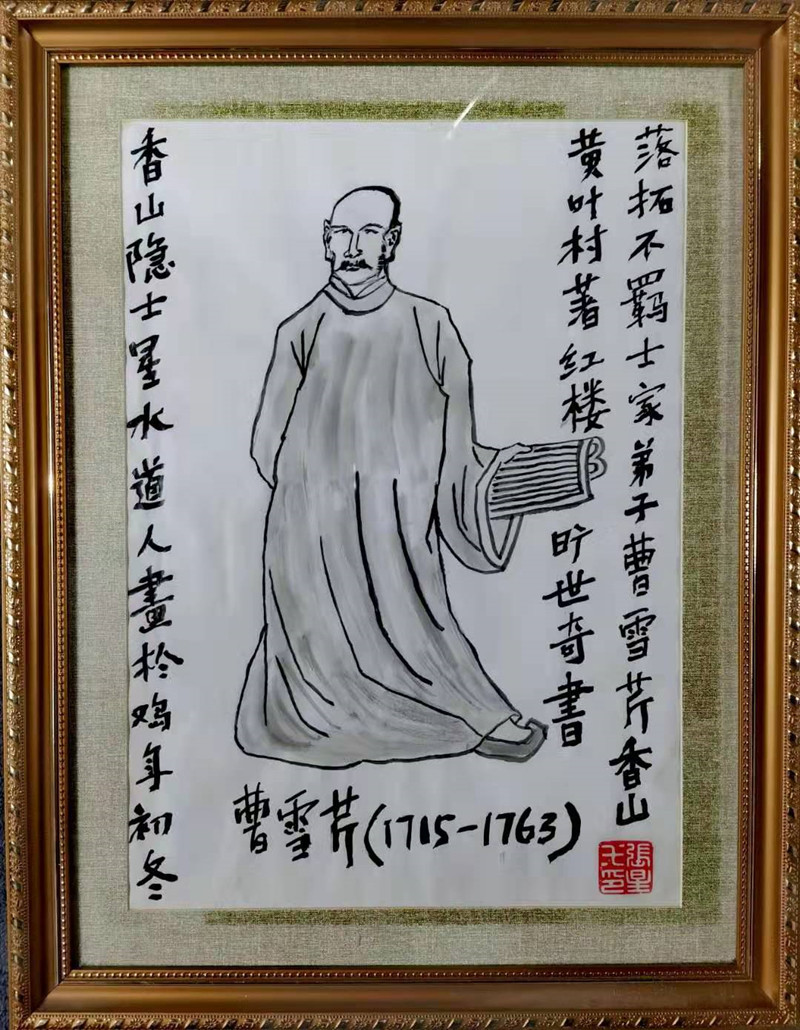 落拓不羁士家弟子曹雪芹香山
黄叶村著红楼旷世奇書
曹雪芹(1715-1763)
香山隐士星水道人畫於鸡年初冬